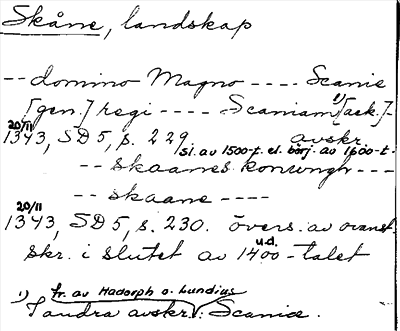 Skåne, landskap
-- domino Magno ---- Scanie
[gen.] regi ---- Scaniam ¹⁾ [ack.]-
20/11 1343, SD 5, s. 229 avskr.
sl. av 1500-t. el. börj. av 1600-t.
-- skaanes konungh ---
-- skaane ----
20/11 1343, SD 5, s. 230. övers. av ovanst.
skr. i slutet av 1400-talet u.d.
¹⁾ tr. av Hadorph o. Lundius
I andra avskr.: Scaniæ.